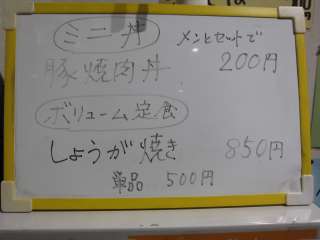 ミニ丼 メンとセットで
豚焼肉丼 200円
ボリューム定食
しょうが焼き 850円
単品 500円